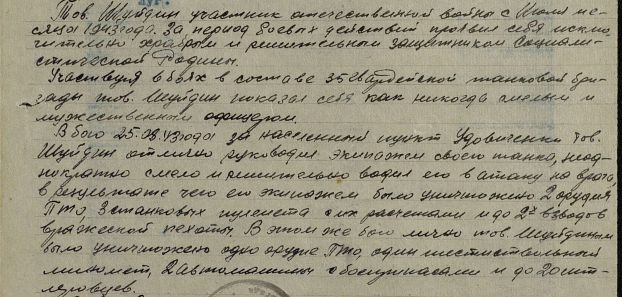 Тов. Шуйдин участник отечественной войны с Июля ме-
сяца 1943 года. За период боевых действий проявил себя исклю-
чительно храбрым и решительным защитником Социали-
стической Родины.
Участвуя в боях в составе 35 Гвардейской танковой бри-
гады тов. Шуйдин показал себя как никогда смелым и
мужественным офицером.
В бою 25.08.43 года за населенный пункт Удовиченки тов.
Шуйдин отлично руководил экипажем своего танка, неод-
нократно смело и решительно водил его в атаку на врага,
в результате чего его экипажем было уничтожено 2 орудия
ПТО, 3 станковых пулемета с их расчетами и до 2х взводов
вражеской пехоты. В этом же бою лично тов. Шуйдиным
было уничтожено одно орудие ПТО, один шестиствольный
миномет, 2 автомашины с боеприпасами и до 20 гит-
леровцев.